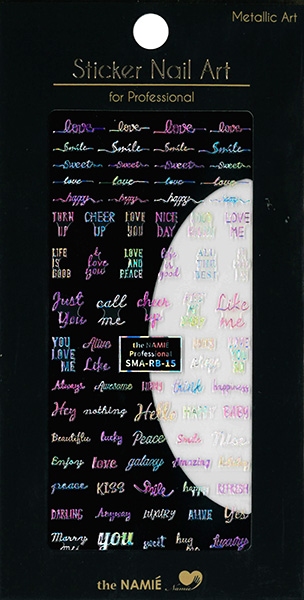 Metallic Art
Sticker Nail Art
for Professional
love love love love
Smile Smile Smile Smile
Sweet Sweet Sweet Sweet
love love love love
happy happy happy happy
TURN UP CHEER UP LOVE YOU NICE DAY LOVE ME
LIFE IS GOOD & love you LOVE AND PEACE life is good ALL THE BEST
Just You call me cheer up Like me
YOU LOVE ME Alive Like
the NAMIE
Professional
SMA-RB-15
Always Awesome think happiness
Hey nothing Hello HAPPY BABY
Beautiful lucky Peace Smile Muse
Enjoy love galaxy Amazing
peace KISS Smile happy
DARLING Anyway LUXURY ALIVE Yes
Marry me you sweet hug me Luxury
the NAMIÉ Namie